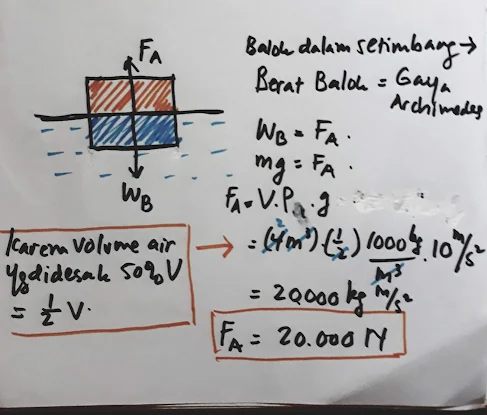 F_A
W_B
Balok dalam setimbang →
Berat Balok = Gaya
Archimedes
W_B = F_A.
mg = F_A.
F_A = V.ρ.g
Karena volume air
yg didesak 50% V
= 1/2 V.
→ = (4m³) (1/2) 1000 kg/m³ . 10 m/s²
= 20000 kg m/s²
F_A = 20.000 N